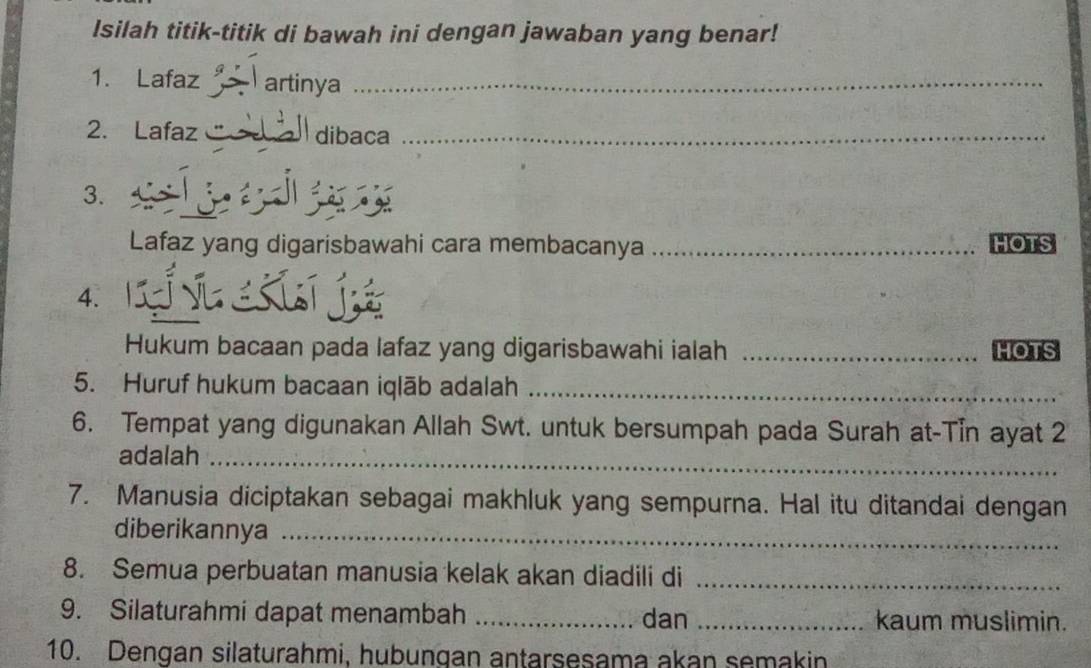 Isilah titik-titik di bawah ini dengan jawaban yang benar!
1. Lafaz أَجْرٌ artinya ....................
2. Lafaz الصّٰلِحٰتِ dibaca ....................
3. يَوْمَ يَفِرُّ الْمَرْءُ مِنْ أَخِيْهِ
Lafaz yang digarisbawahi cara membacanya .................... HOTS
4. يَقُوْلُ أَهْلَكْتُ مَالًا لُّبَدًا
Hukum bacaan pada lafaz yang digarisbawahi ialah .................... HOTS
5. Huruf hukum bacaan iqlāb adalah ....................
6. Tempat yang digunakan Allah Swt. untuk bersumpah pada Surah at-Tīn ayat 2
adalah ....................
7. Manusia diciptakan sebagai makhluk yang sempurna. Hal itu ditandai dengan
diberikannya ....................
8. Semua perbuatan manusia kelak akan diadili di ....................
9. Silaturahmi dapat menambah .................... dan .................... kaum muslimin.
10. Dengan silaturahmi, hubungan antarsesama akan semakin